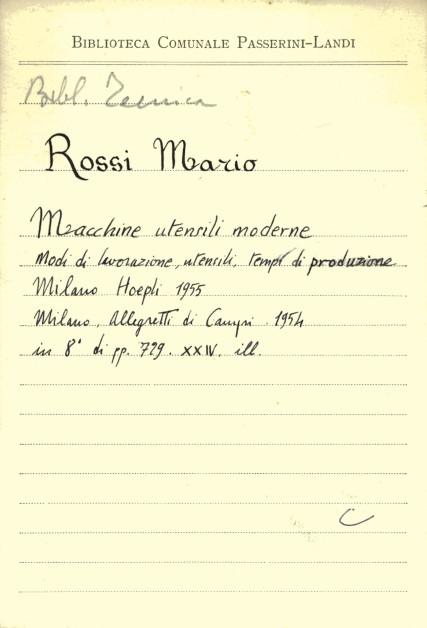 BIBLIOTECA COMUNALE PASSERINI-LANDI
Bibl. Tecnica
Rossi Mario
Macchine utensili moderne
Modi di lavorazione, utensili, tempi di produzione
Milano Hoepli 1955
Milano, Allegretti di Campi. 1954
in 8° di pp. 729. XXIV. ill.
C